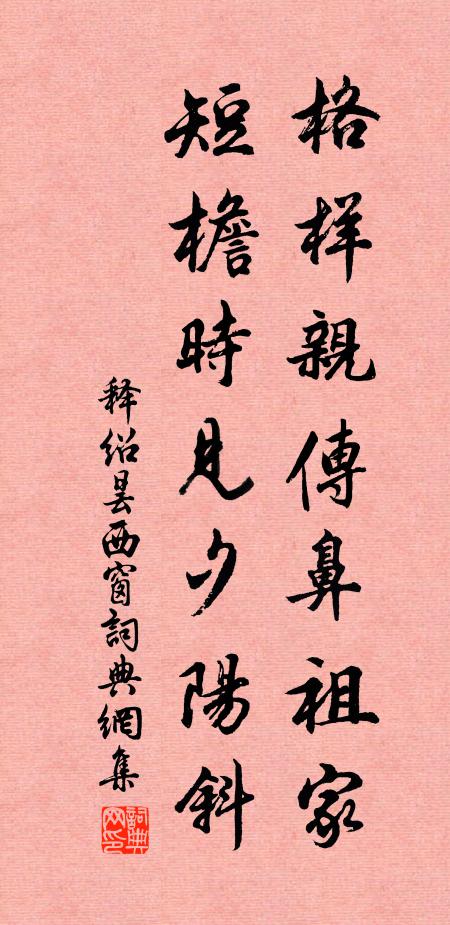 格样親傳鼻祖家
短檐時見夕陽斜
释绍昙西窗詞典網集
詞典網印